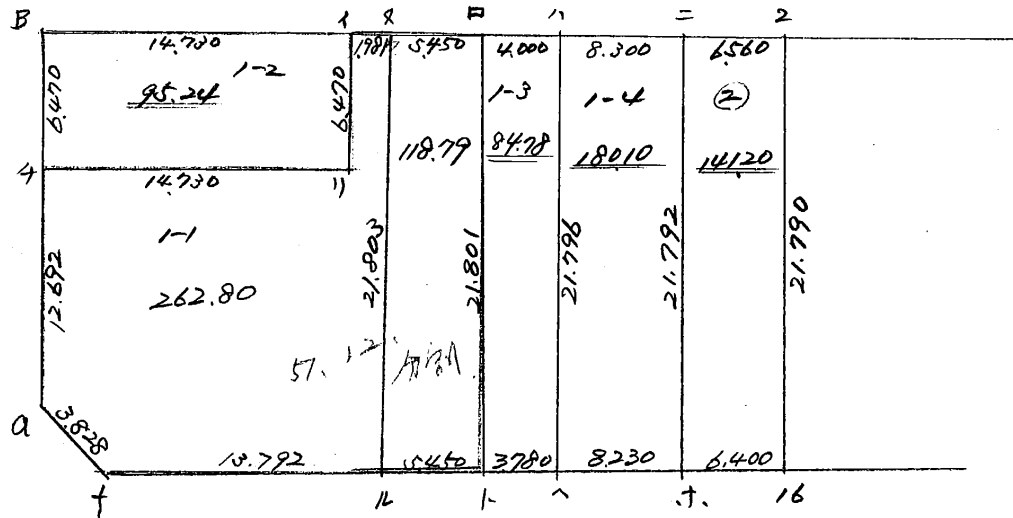 B イ ヌ ロ ハ ニ 2
14.730 1.981 5.450 4.000 8.300 6.560
6.470 1-2 6.470 1-3 1-4 ②
95.24 118.79 84.78 180.10 141.20
4 14.730 リ
1-1
12.692 21.803 21.801 21.796 21.792 21.790
262.80
57. 12. 分割
a 3.828
13.792 5.450 3.780 8.230 6.400
チ ル ト ヘ ホ 16